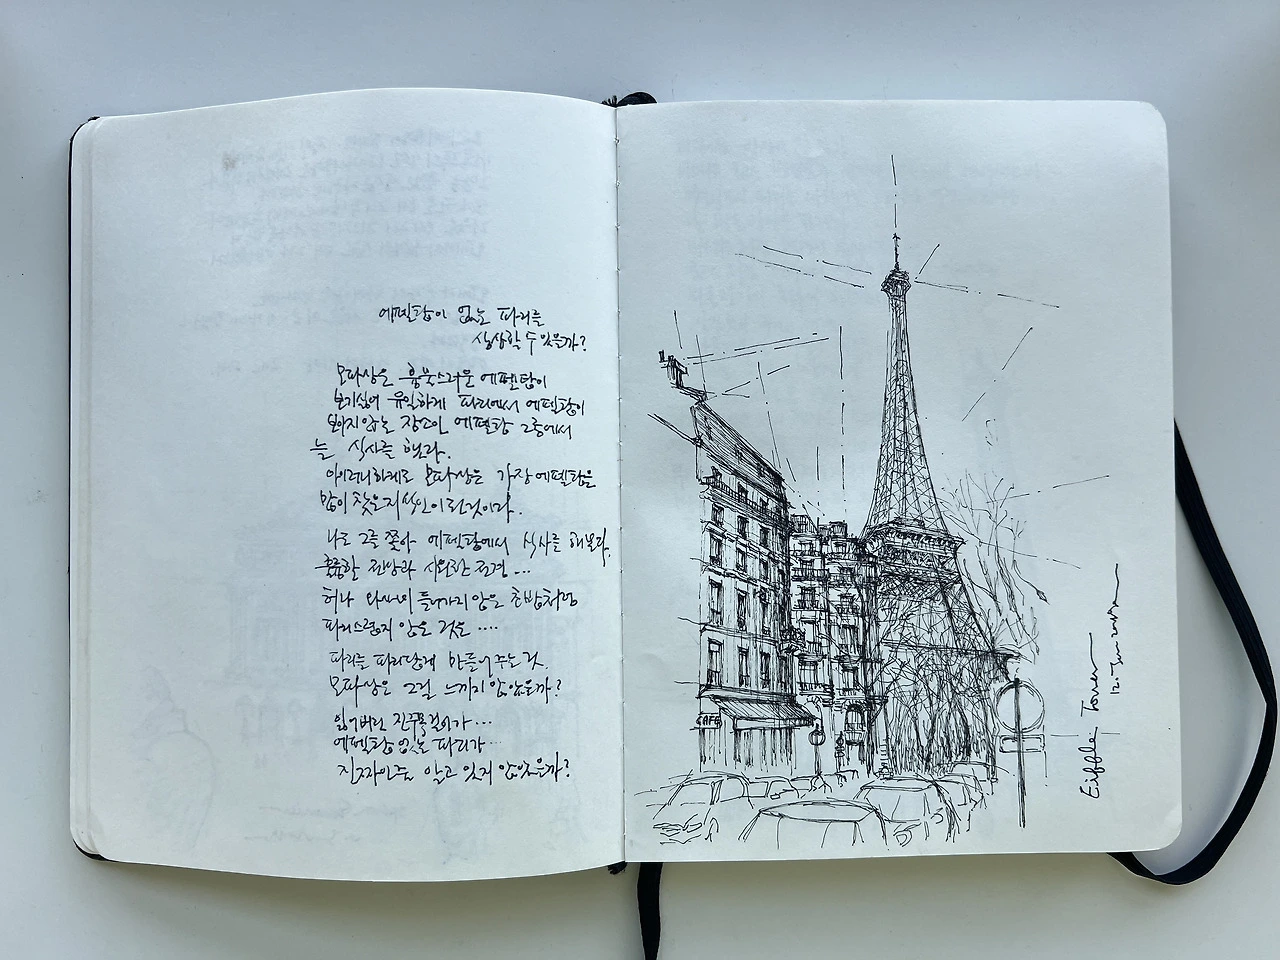 에펠탑이 없는 파리를
상상할 수 있을까?
모파상은 흉물스러운 에펠탑이
보기싫어 유일하게 파리에서 에펠탑이
보이지 않는 장소인 에펠탑 2층에서
늘 식사를 했다.
아이러니하게도 모파상은 가장 에펠탑을
많이 찾은 지식인이 된것이다.
나도 그를 쫓아 에펠탑에서 식사를 해본다.
훌륭한 전망과 시원한 전경...
허나 와사비 들어가지 않은 초밥처럼
파리스럽지 않은 것은 ....
파리를 파리답게 만들어 주는 것.
모파상은 그걸 느끼지 않았을까?
잃어버린 진주목걸이가...
에펠탑 없는 파리가...
진짜인줄 알고 있지 않았을까?
CAFE
Eiffle Tower